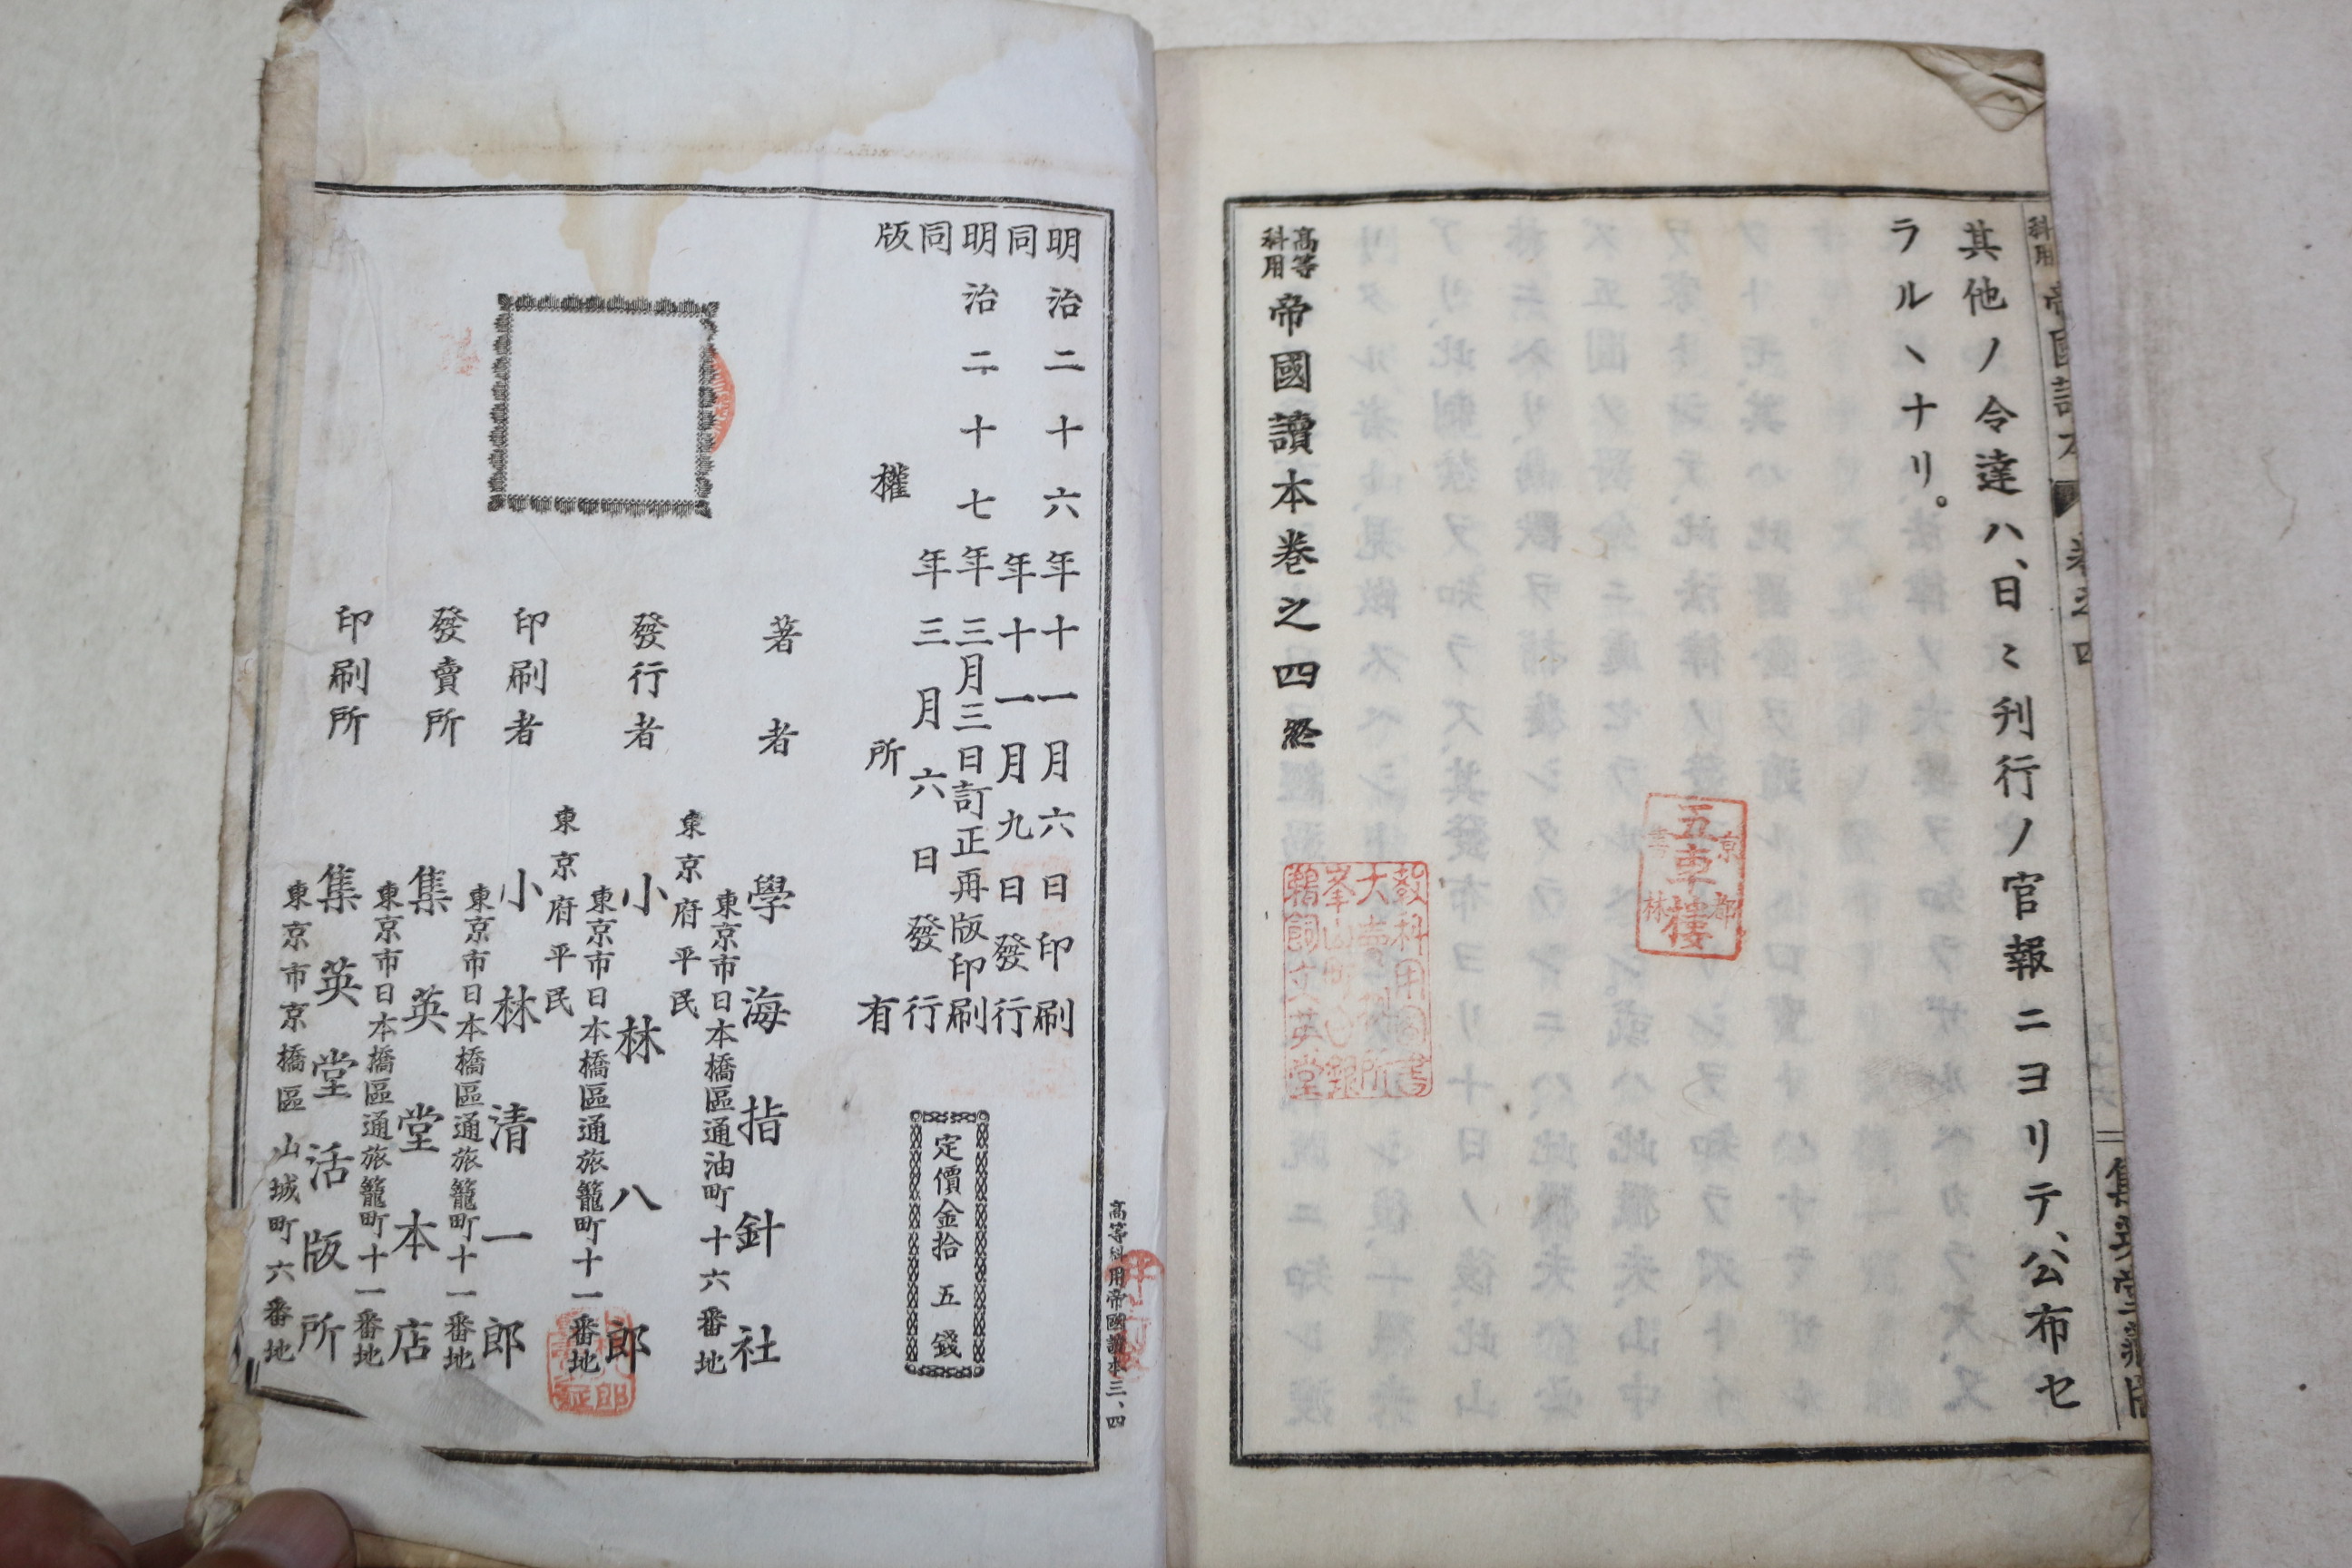 其他ノ令達ハ、日〻刊行ノ官報ニヨリテ、公布セ
ラルヽナリ。
高等科用帝國讀本卷之四終
京都書林
五車樓
教科用圖書
大賣捌所
峯山町
鵜飼文英堂
明治二十六年十一月六日印刷
同年十一月九日發行
明治二十七年三月三日訂正再版印刷
同年三月六日發行
版權所有
定價金拾五錢
著者
學海指針社
東京市日本橋區通油町十六番地
東京府平民
發行者
小林八郎
東京市日本橋區通旅籠町十一番地
東京府平民
印刷者
小林清一郎
東京市日本橋區通旅籠町十一番地
發賣所
集英堂本店
東京市日本橋區通旅籠町十一番地
印刷所
集英堂活版所
東京市京橋區山城町六番地
高等科用帝國讀本三、四